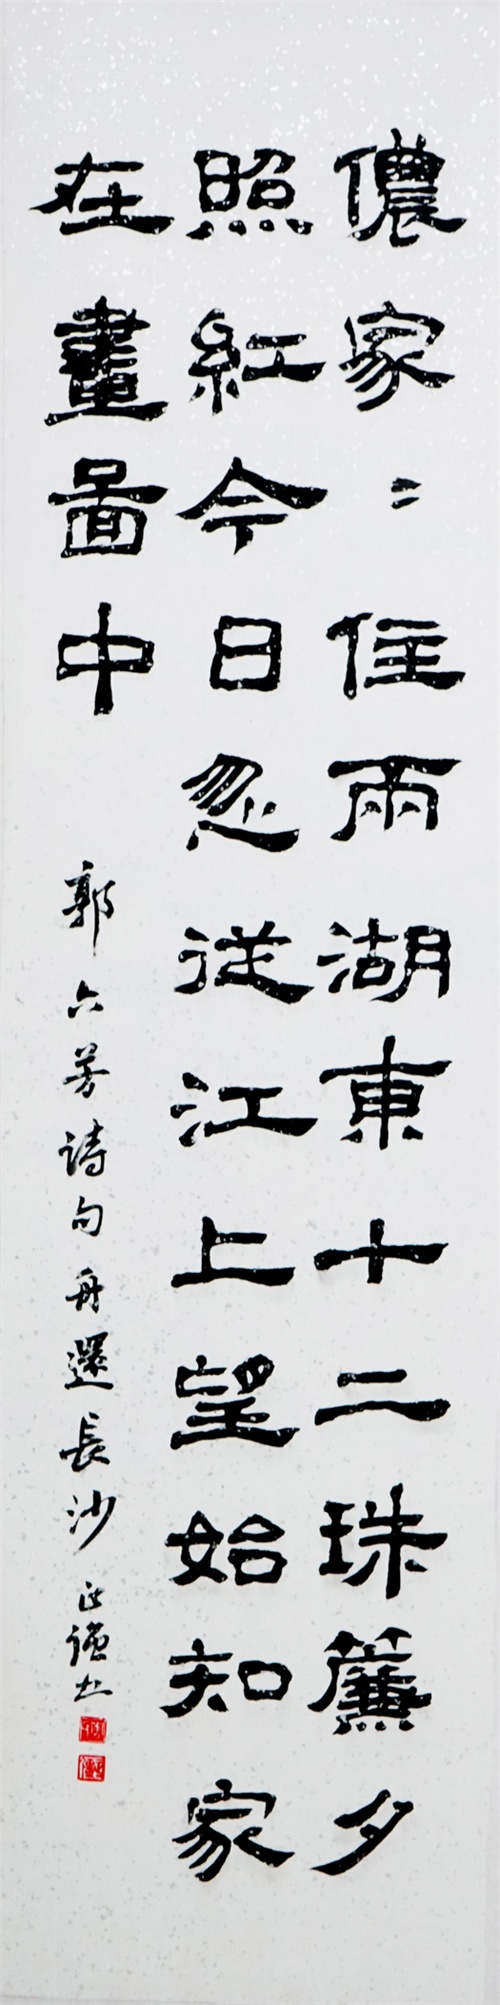 儂家〻住兩湖東十二珠簾夕
照紅今日忽從江上望始知家
在畫圖中
郭六芳詩句舟還長沙 正強书